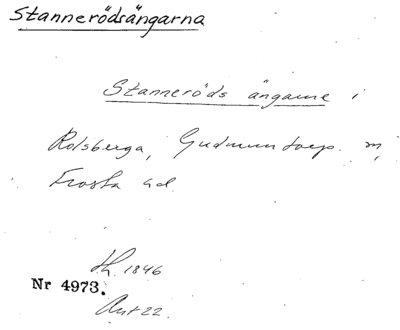 Stannerödsängarna
Stanneröds ängarne i
Rolsberga, Gudmuntorp. m,
Frosta hd.
Lh. 1846
Nr 4973.
Ant 22.